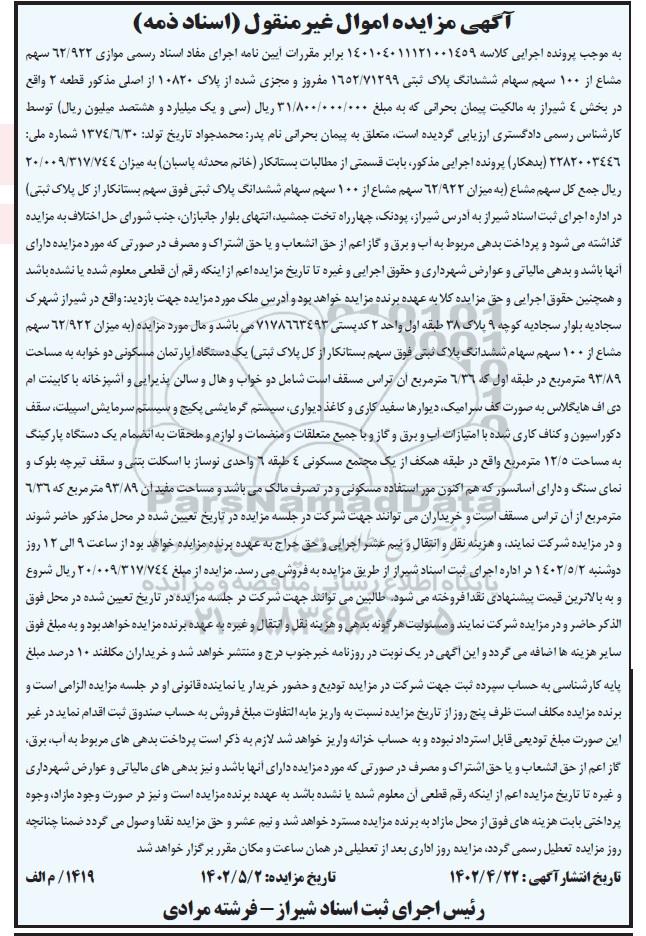 آگهی مزایده اموال غیرمنقول (اسناد ذمه)
به موجب پرونده اجرایی کلاسه ۱۴۰۱۰۴۰۱۱۱۲۱۰۰۱۴۵۹ برابر مقررات آیین نامه اجرای مفاد اسناد رسمی موازی ۶۲/۹۲۲ سهم
مشاع از ۱۰۰ سهم سهام ششدانگ پلاک ثبتی ۱۶۵۲/۷۱۲۹۹ مفروز و مجزی شده از پلاک ۱۰۸۲۰ از اصلی مذکور قطعه ۲ واقع
در بخش ۴ شیراز به مالکیت پیمان بحرانی که به مبلغ ۳۱/۸۰۰/۰۰۰/۰۰۰ ریال (سی و یک میلیارد و هشتصد میلیون ریال) توسط
کارشناس رسمی دادگستری ارزیابی گردیده است، متعلق به پیمان بحرانی نام پدر: محمدجواد تاریخ تولد: ۱۳۷۴/۶/۳۰ شماره ملی:
۲۲۸۲۰۰۳۴۴۶ (بدهکار) پرونده اجرایی مذکور، بابت قسمتی از مطالبات بستانکار (خانم محدثه پاسبان) به میزان ۲۰/۰۰۹/۳۱۷/۷۴۴
ریال جمع کل سهم مشاع (به میزان ۶۲/۹۲۲ سهم مشاع از ۱۰۰ سهم سهام ششدانگ پلاک ثبتی فوق سهم بستانکار از کل پلاک ثبتی)
در اداره اجرای ثبت اسناد شیراز به آدرس شیراز، پودنک، چهارراه تخت جمشید، انتهای بلوار جانبازان، جنب شورای حل اختلاف به مزایده
گذاشته می شود و پرداخت بدهی مربوط به آب و برق و گاز اعم از حق انشعاب و یا حق اشتراک و مصرف در صورتی که مورد مزایده دارای
آنها باشد و بدهی مالیاتی و عوارض شهرداری و حقوق اجرایی و غیره تا تاریخ مزایده اعم از اینکه رقم آن قطعی معلوم شده یا نشده باشد
و همچنین حقوق اجرایی و حق مزایده کلا به عهده برنده مزایده خواهد بود و آدرس ملک مورد مزایده جهت بازدید: واقع در شیراز شهرک
سجادیه بلوار سجادیه کوچه ۹ پلاک ۳۸ طبقه اول واحد ۲ کدپستی ۷۱۷۸۶۶۳۴۹۳ می باشد و مال مورد مزایده (به میزان ۶۲/۹۲۲ سهم
مشاع از ۱۰۰ سهم سهام ششدانگ پلاک ثبتی فوق سهم بستانکار از کل پلاک ثبتی) یک دستگاه آپارتمان مسکونی دو خوابه به مساحت
۹۳/۸۹ مترمربع در طبقه اول که ۶/۳۶ مترمربع آن تراس مسقف است شامل دو خواب و هال و سالن پذیرایی و آشپزخانه با کابینت ام
دی اف هایگلاس به صورت کف سرامیک، دیوارها سفید کاری و کاغذ دیواری، سیستم گرمایشی پکیج و سیستم سرمایش اسپیلت، سقف
دکوراسیون و کناف کاری شده با امتیازات آب و برق و گاز و با جمیع متعلقات و منضمات و لوازم و ملحقات به انضمام یک دستگاه پارکینگ
به مساحت ۱۲/۵ مترمربع واقع در طبقه همکف از یک مجتمع مسکونی ۴ طبقه ۶ واحدی نوساز با اسکلت بتنی و سقف تیرچه بلوک و
نمای سنگ و دارای آسانسور که هم اکنون مور استفاده مسکونی و در تصرف مالک می باشد و مساحت مفید آن ۹۳/۸۹ مترمربع که ۶/۳۶
مترمربع از آن تراس مسقف است و خریداران می توانند جهت شرکت در جلسه مزایده در تاریخ تعیین شده در محل مذکور حاضر شوند
و در مزایده شرکت نمایند، و هزینه نقل و انتقال و نیم عشر اجرایی و حق حراج به عهده برنده مزایده خواهد بود از ساعت ۹ الی ۱۲ روز
دوشنبه ۱۴۰۲/۵/۲ در اداره اجرای ثبت اسناد شیراز از طریق مزایده به فروش می رسد. مزایده از مبلغ ۲۰/۰۰۹/۳۱۷/۷۴۴ ریال شروع
و به بالاترین قیمت پیشنهادی نقدا فروخته می شود. طالبین می توانند جهت شرکت در جلسه مزایده در تاریخ تعیین شده در محل فوق
الذکر حاضر و در مزایده شرکت نمایند و مسئولیت هر گونه بدهی و هزینه نقل و انتقال و غیره به عهده برنده مزایده خواهد بود و به مبلغ فوق
سایر هزینه ها اضافه می گردد و این آگهی در یک نوبت در روزنامه خبرجنوب درج و منتشر خواهد شد و خریداران مکلفند ۱۰ درصد مبلغ
پایه کارشناسی به حساب سپرده ثبت جهت شرکت در مزایده تودیع و حضور خریدار یا نماینده قانونی او در جلسه مزایده الزامی است و
برنده مزایده مکلف است ظرف پنج روز از تاریخ مزایده نسبت به واریز مابه التفاوت مبلغ فروش به حساب صندوق ثبت اقدام نماید در غیر
این صورت مبلغ تودیعی قابل استرداد نبوده و به حساب خزانه واریز خواهد شد لازم به ذکر است پرداخت بدهی های مربوط به آب، برق،
گاز اعم از حق انشعاب و یا حق اشتراک و مصرف در صورتی که مورد مزایده دارای آنها باشد و نیز بدهی های مالیاتی و عوارض شهرداری
و غیره تا تاریخ مزایده اعم از اینکه رقم قطعی آن معلوم شده یا نشده باشد به عهده برنده مزایده است و نیز در صورت وجود مازاد، وجوه
پرداختی بابت هزینه های فوق از محل مازاد به برنده مزایده مسترد خواهد شد و نیم عشر و حق مزایده نقدا وصول می گردد ضمنا چنانچه
روز مزایده تعطیل رسمی گردد، مزایده روز اداری بعد از تعطیلی در همان ساعت و مکان مقرر برگزار خواهد شد
تاریخ انتشار آگهی : ۱۴۰۲/۴/۲۲ تاریخ مزایده: ۱۴۰۲/۵/۲ ۱۴۱۹/ م الف
رئیس اجرای ثبت اسناد شیراز – فرشته مرادی
ParsNamadData
پایگاه اطلاع رسانی مناقصه و مزایده
۰۲۱-۸۸۳۴۹۶۷۰-۵